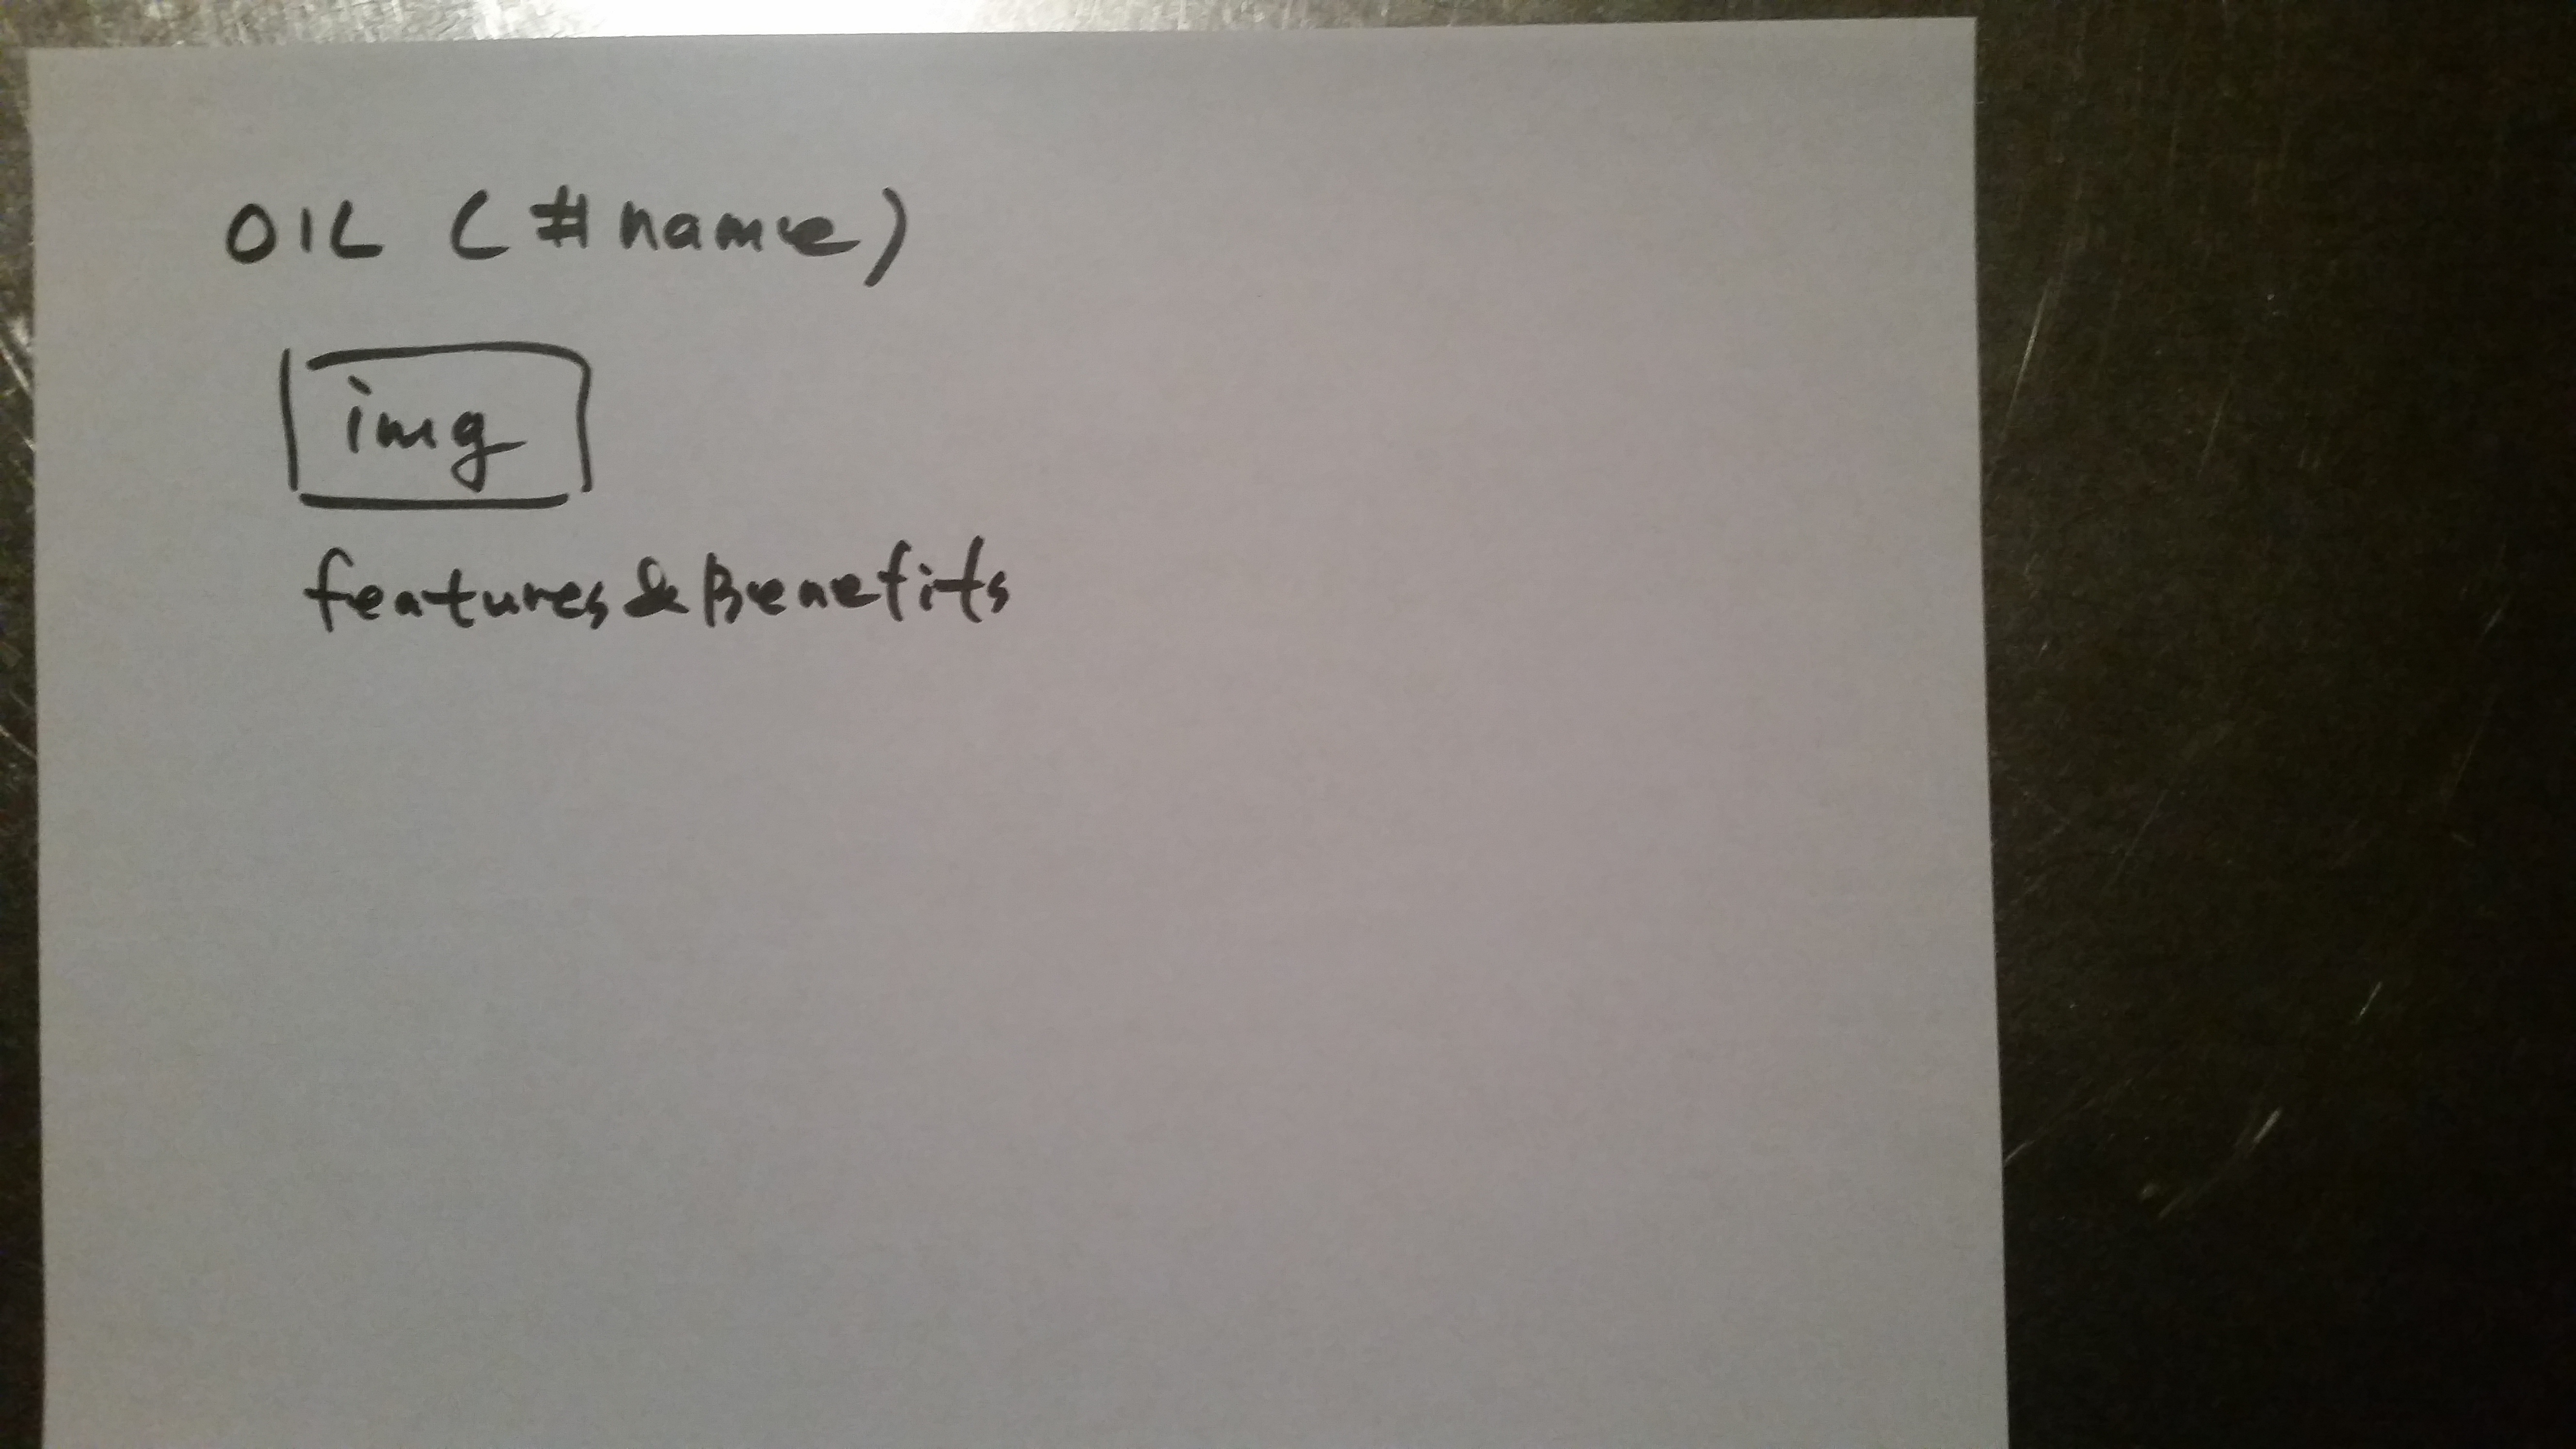 OIL (#name)
img
features & Benefits